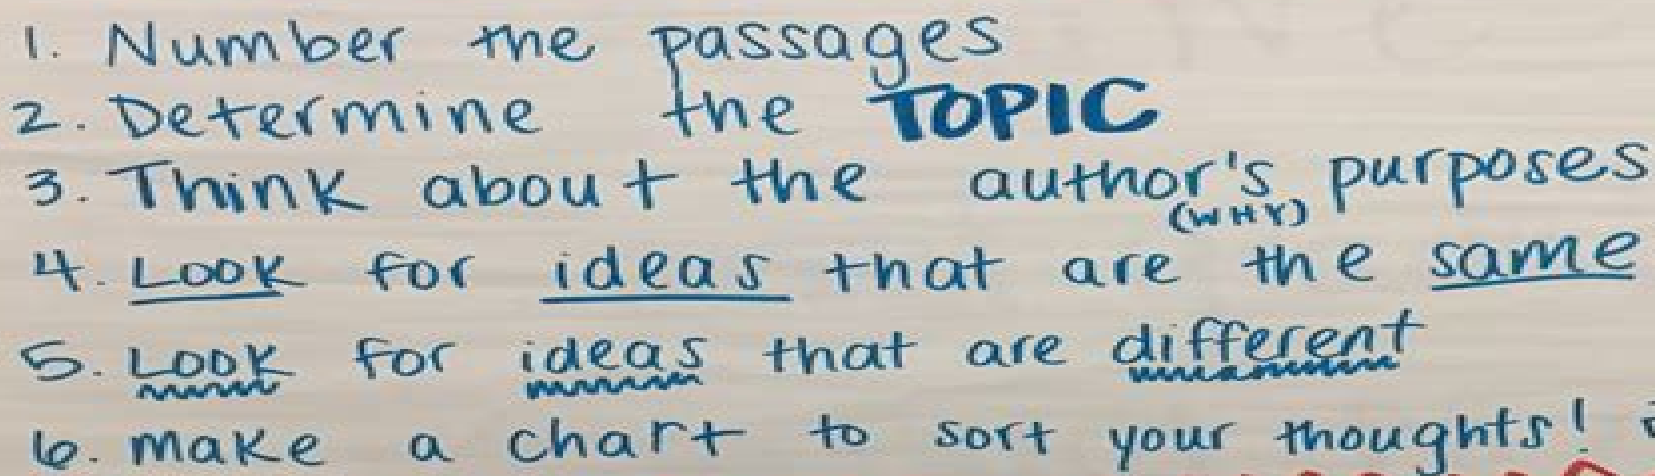 1. Number the passages
2. Determine the TOPIC
3. Think about the author's purposes
(WHY)
4. Look for ideas that are the same
5. Look for ideas that are different
6. make a chart to sort your thoughts!